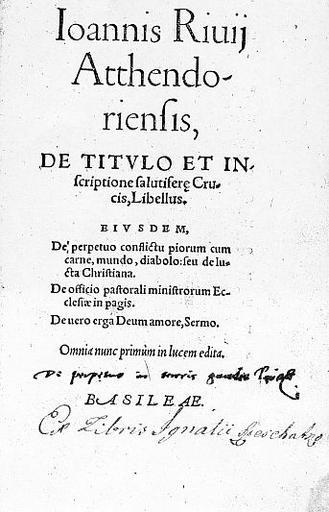 Ioannis Riuij
Atthendo-
riensis,
DE TITVLO ET IN-
scriptione salutiferę Cru-
cis, Libellus.
EIVSDEM,
De perpetuo conflictu piorum cum
carne, mundo, diabolo: seu de lu-
cta Christiana.
De officio pastorali ministrorum Ec-
clesiæ in pagis.
De uero erga Deum amore, Sermo.
Omnia nunc primùm in lucem edita.
BASILEAE.
Ex Libris Ignatii